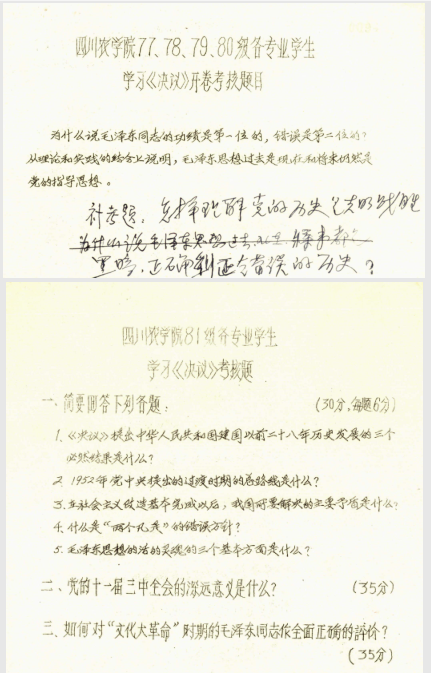 四川农学院77、78、79、80级各专业学生
学习《决议》开卷考核题目
为什么说毛泽东同志的功绩是第一位的，错误是第二位的？
从理论和实践的结合上说明，毛泽东思想过去是现在和将来仍然是
党的指导思想。
补考题：怎样理解党的历史是光明战胜
为什么说毛泽东思想过去、现在 将来都
黑暗，正确纠正错误的历史？
四川农学院81级各专业学生
学习《决议》考核题
一、简要回答下列各题： （30分，每题6分）
1.《决议》提出中华人民共和国建国以前二十八年历史发展的三个
必然结果是什么？
2. 1952年党中央提出的过渡时期的总路线是什么？
3. 在社会主义改造基本完成以后，我国所要解决的主要矛盾是什么？
4. 什么是“两个凡是”的错误方针？
5. 毛泽东思想的活的灵魂的三个基本方面是什么？
二、党的十一届三中全会的深远意义是什么？ （35分）
三、如何对“文化大革命”时期的毛泽东同志作全面正确的评价？
（35分）